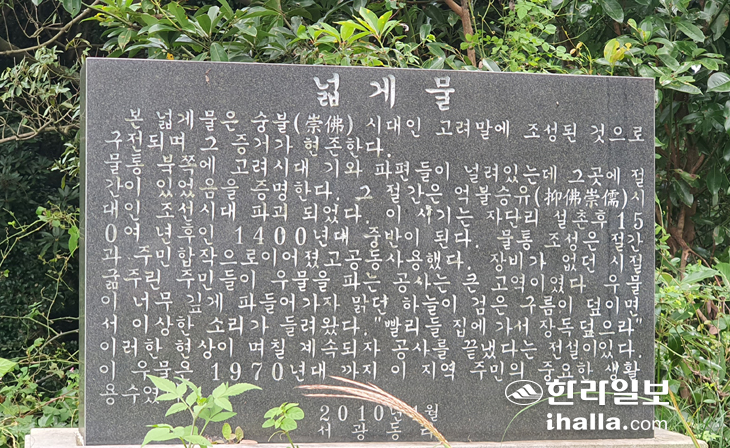 넓게물
본 넓게물은 숭불(崇佛) 시대인 고려말에 조성된 것으로
구전되며 그 증거가 현존한다.
물통 북쪽에 고려시대 기와 파편들이 널려있는데 그곳에 절
간이 있었음을 증명한다. 그 절간은 억불숭유(抑佛崇儒)시
대인 조선시대 파괴 되었다. 이 시기는 자단리 설촌후 15
0여 년후인 1400년대 중반이 된다. 물통 조성은 절간
과 주민합작으로이어졌고공동사용했다. 장비가 없던 시절
굶주린 주민들이 우물을 파는 공사는 큰 고역이였다 우물
이 너무 깊게 파들어가자 맑던 하늘이 검은 구름이 덮이면
서 이상한 소리가 들려왔다. "빨리들 집에 가서 장독덮으라"
이러한 현상이 며칠 계속되자 공사를 끝냈다는 전설이있다.
이 우물은 1970년대 까지 이 지역 주민의 중요한 생활
용수였
2010년 1월
서광동리
한라일보
ihalla.com